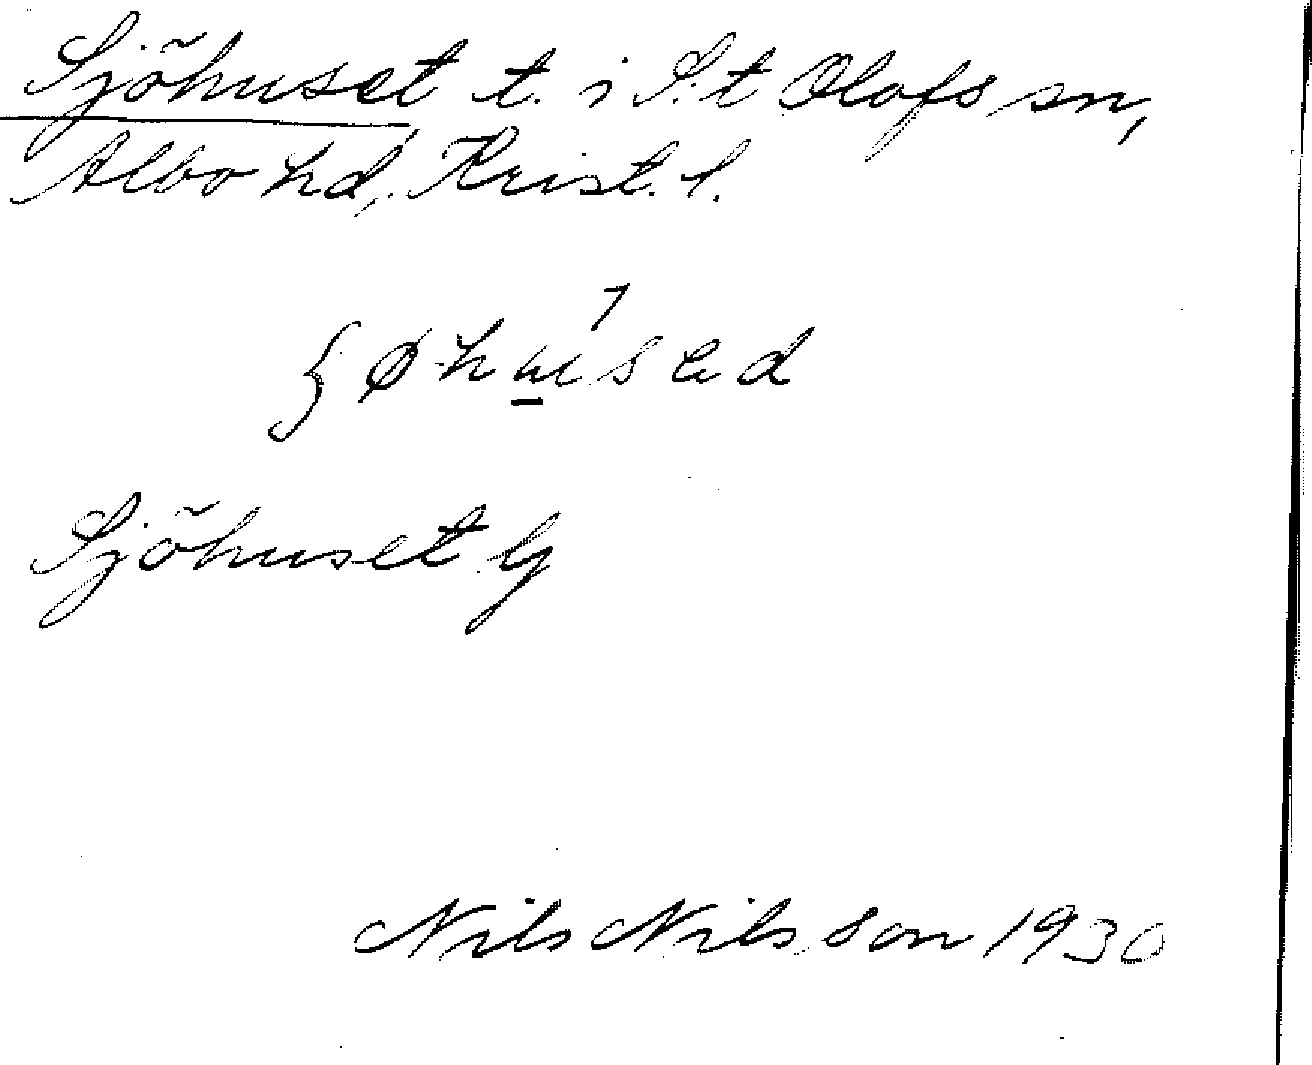 Sjöhuset t. i S:t Olofs sn,
Albo hd, Krist. l.
Sjöhuset G
Nils Nilsson 1930